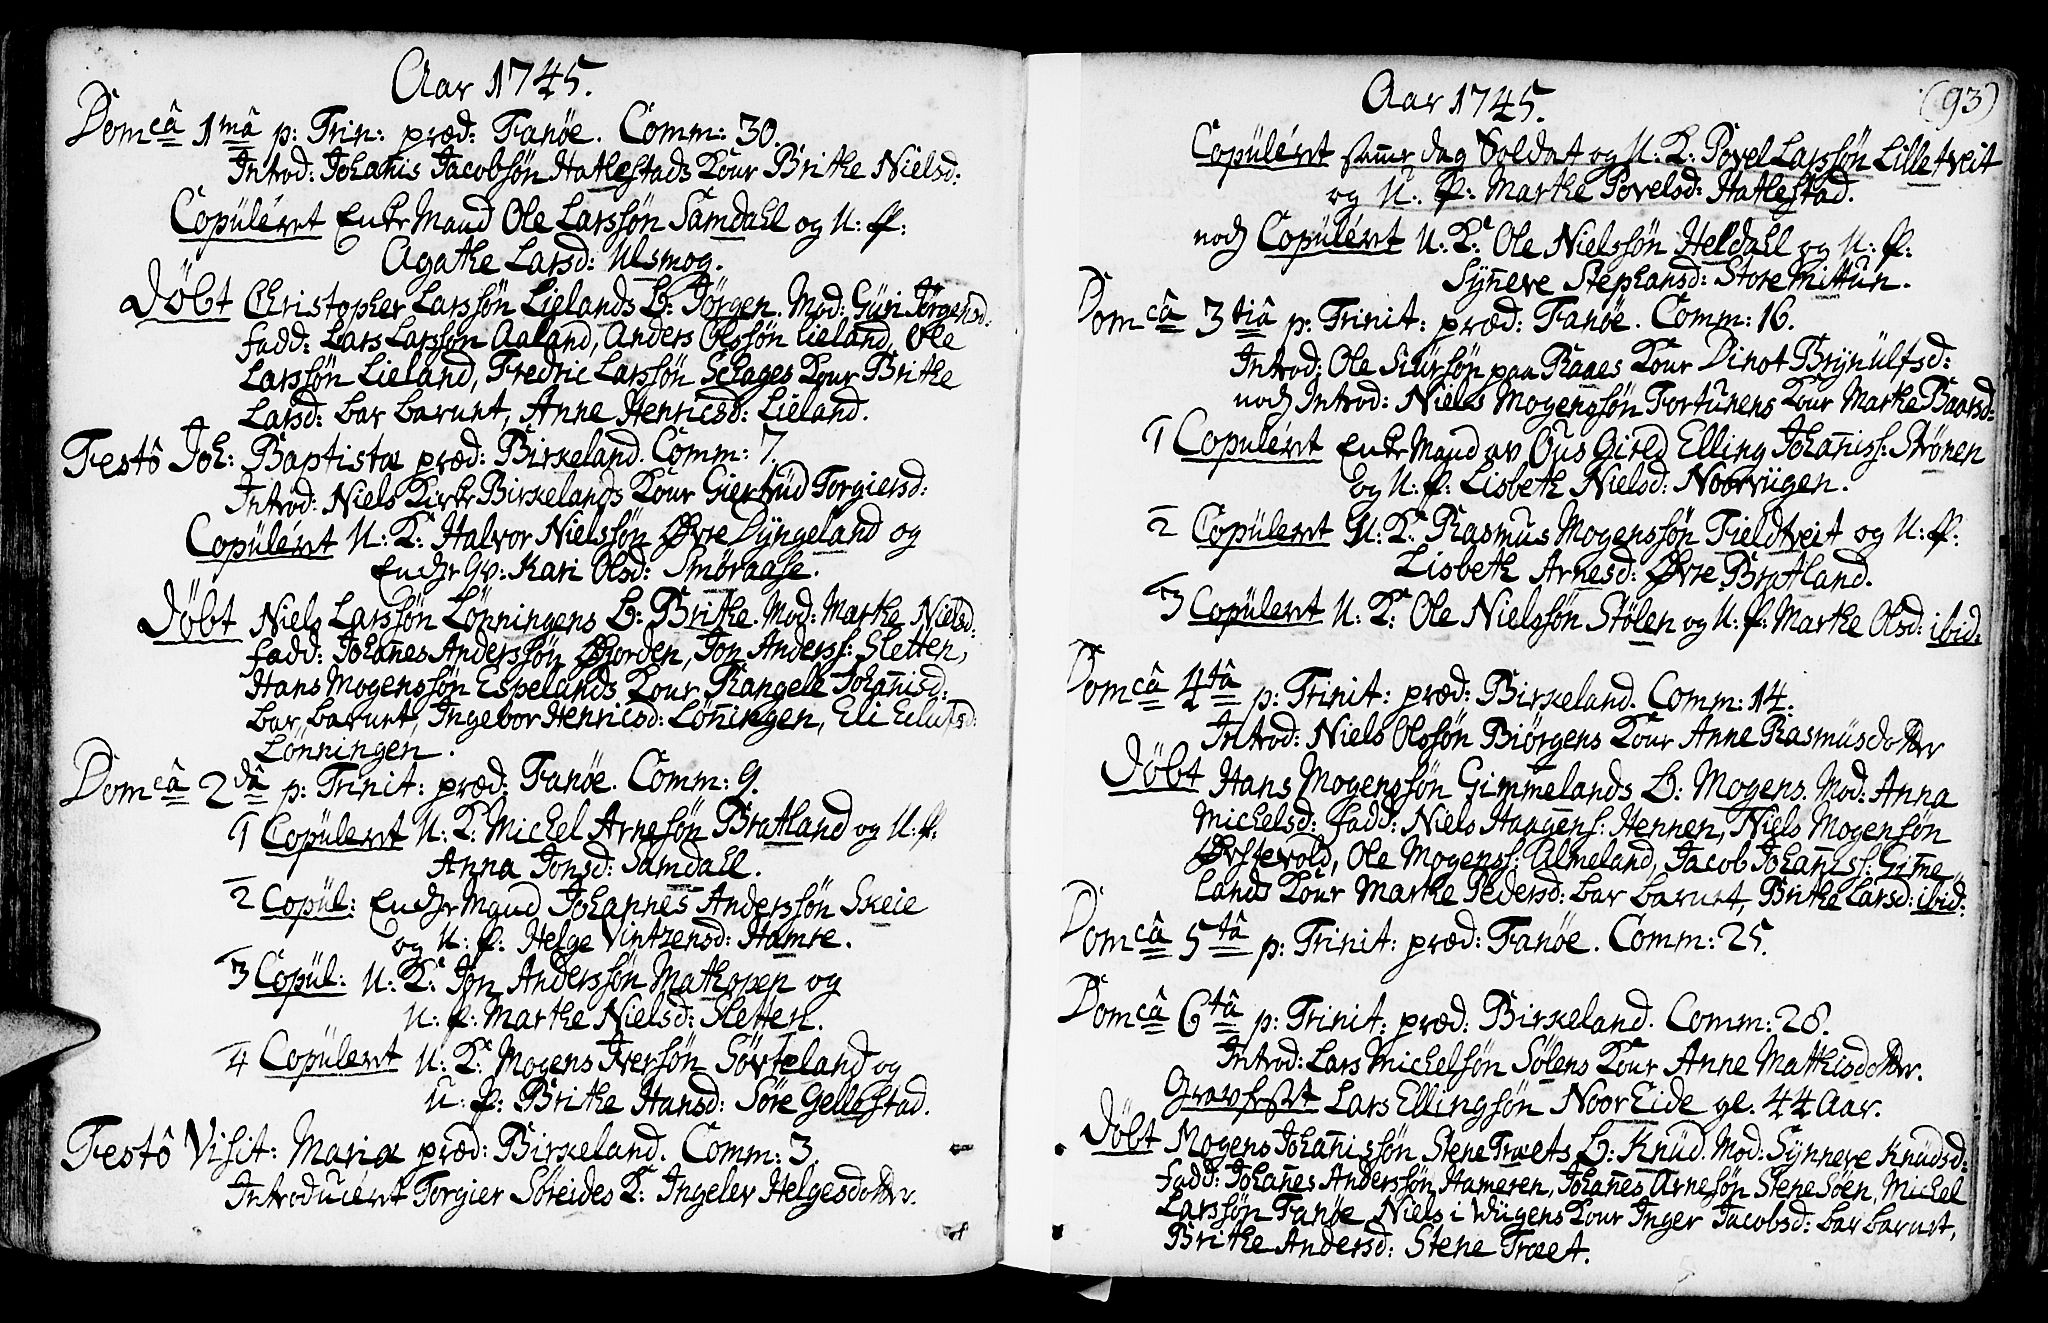 Aar 1745.
Domcâ 1mâ p: Trin: præd: Fanöe. Comm: 30.
Introd: Johanis Jacobsön Hatlestads Kone Brithe Nielsd:
Copuleret Enke Mand Ole Larssön Samdahl og U: P:
Agathe Larsd: Ulsmog.
Döbt Christopher Larssön Lielands B: Jörgen. Mod: Guri Jörgensd:
Fadd: Lars Larssön Aaland, Anders Olssön Lieland, Ole
Larssön Lieland, Fredric Larssön Schages Kone Brithe
Larsd: bar barnet, Anne Henricsd: Lieland.
Festô Joh: Baptistæ præd: Birkeland. Comm: 7.
Introd: Niels Kirke Birkelands Kone Giertrud Torgiersd:
Copuleret U: K: Halvor Nielssön Øvre Dyngeland og
Enche Qv: Kari Olsd: Smöraase.
Döbt Niels Larssön Lönningens B: Brithe. Mod: Marthe Nielsd:
Fadd: Johanes Anderssön Øvorden, Jon Anderss: Sletten,
Hans Mogenssön Espelands Kone Rangele Johanisd:
bar barnet, Ingebor Henricsd: Lönningen, Eli Eilufsd:
Lönningen.
Domcâ 2dâ p: Trinit: præd: Fanöe. Comm: 9.
1 Copuleret U: K: Michel Arnesön Bratland og U: P:
Anna Jonsd: Samdahl.
2 Copul: Enche Mand Johannes Anderssön Skeie
og U: P: Helge Vintzensd: Hamre.
3 Copul: U: K: Jon Anderssön Mathopen og
U: P: Marthe Nielsd: Sletten.
4 Copuleret U: K: Mogens Iversön Sörteland og
U: P: Brithe Hansd: Söre Gellestad.
Festô Visit: Mariæ præd: Birkeland. Comm: 3.
Introduceret Torgier Söreides K: Ingelev Helgesdotter.
Aar 1745.
(93)
Copuleret samme dag Soldat og U: K: Povel Larssön Lilletveit
og U: P: Marthe Povelsd: Hatlestad.
noch Copuleret U: K: Ole Nielssön Heldahl og U: P:
Synneve Stephansd: Store Mittun.
Domcâ 3tiâ p: Trinit: præd: Fanöe. Comm: 16.
Introd: Ole Siursön paa Raaes Kone Dinot Brynulfsd:
noch Introd: Niels Mogenssön Tortunens Kone Marthe Baarsd:
1 Copuleret Enke Mand av Ous Gield Elling Johaniss: Strönen
og U: P: Lisbeth Nielsd: Noorvugen.
2 Copuleret U: K: Rasmus Mogenssön Fieldtveit og U: P:
Lisbeth Arnesd: Øvre Bratland.
3 Copuleret U: K: Ole Nielssön Stölen og U: P: Marthe Olsd: ibid:
Domcâ 4tâ p: Trinit: præd: Birkeland. Comm: 14.
Introd: Niels Olssön Biörgens Kone Anne Rasmusdotter
Döbt Hans Mogenssön Gimmelands B: Mogens. Mod: Anna
Michelsd: Fadd: Niels Haagens: Hennen, Niels Mogensön
Østevold, Ole Mogenss: Almeland, Jacob Johaniss: Gime
lands Kone Marthe Pedersd: bar barnet, Brithe Larsd: ibid:
Domcâ 5tâ p: Trinit: præd: Fanöe. Comm: 25.
Domcâ 6tâ p: Trinit: præd: Birkeland. Comm: 28.
Introd: Lars Michelsön Sölens Kone Anne Mathisdotter.
Gravfest Lars Ellingsön Noor Eide gl. 44 Aar.
Döbt Mogens Johanissön Stene Træets B: Knud. Mod: Synneve Knudsd:
Fadd: Johanes Anderssön Hameren, Johanes Arnesön Stene Söen, Michel
Larssön Fanöe, Niels i Wugens Kone Inger Jacobsd: bar barnet,
Brithe Andersd: Stene Træet.